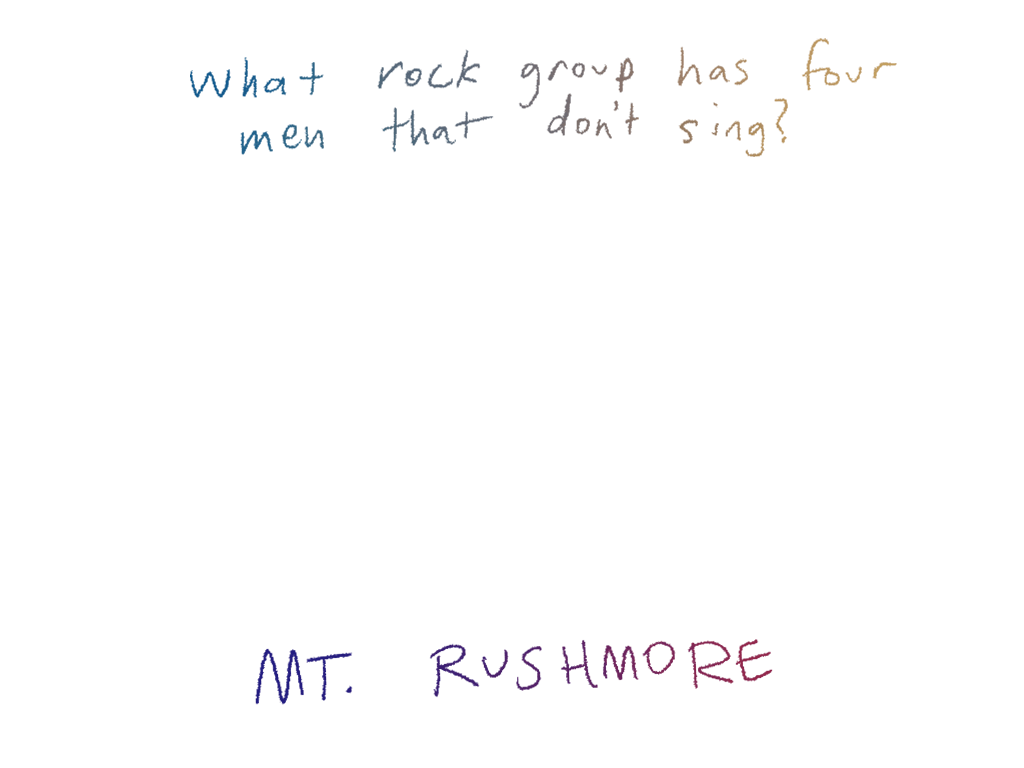 What rock group has four
men that don't sing?
MT. RUSHMORE